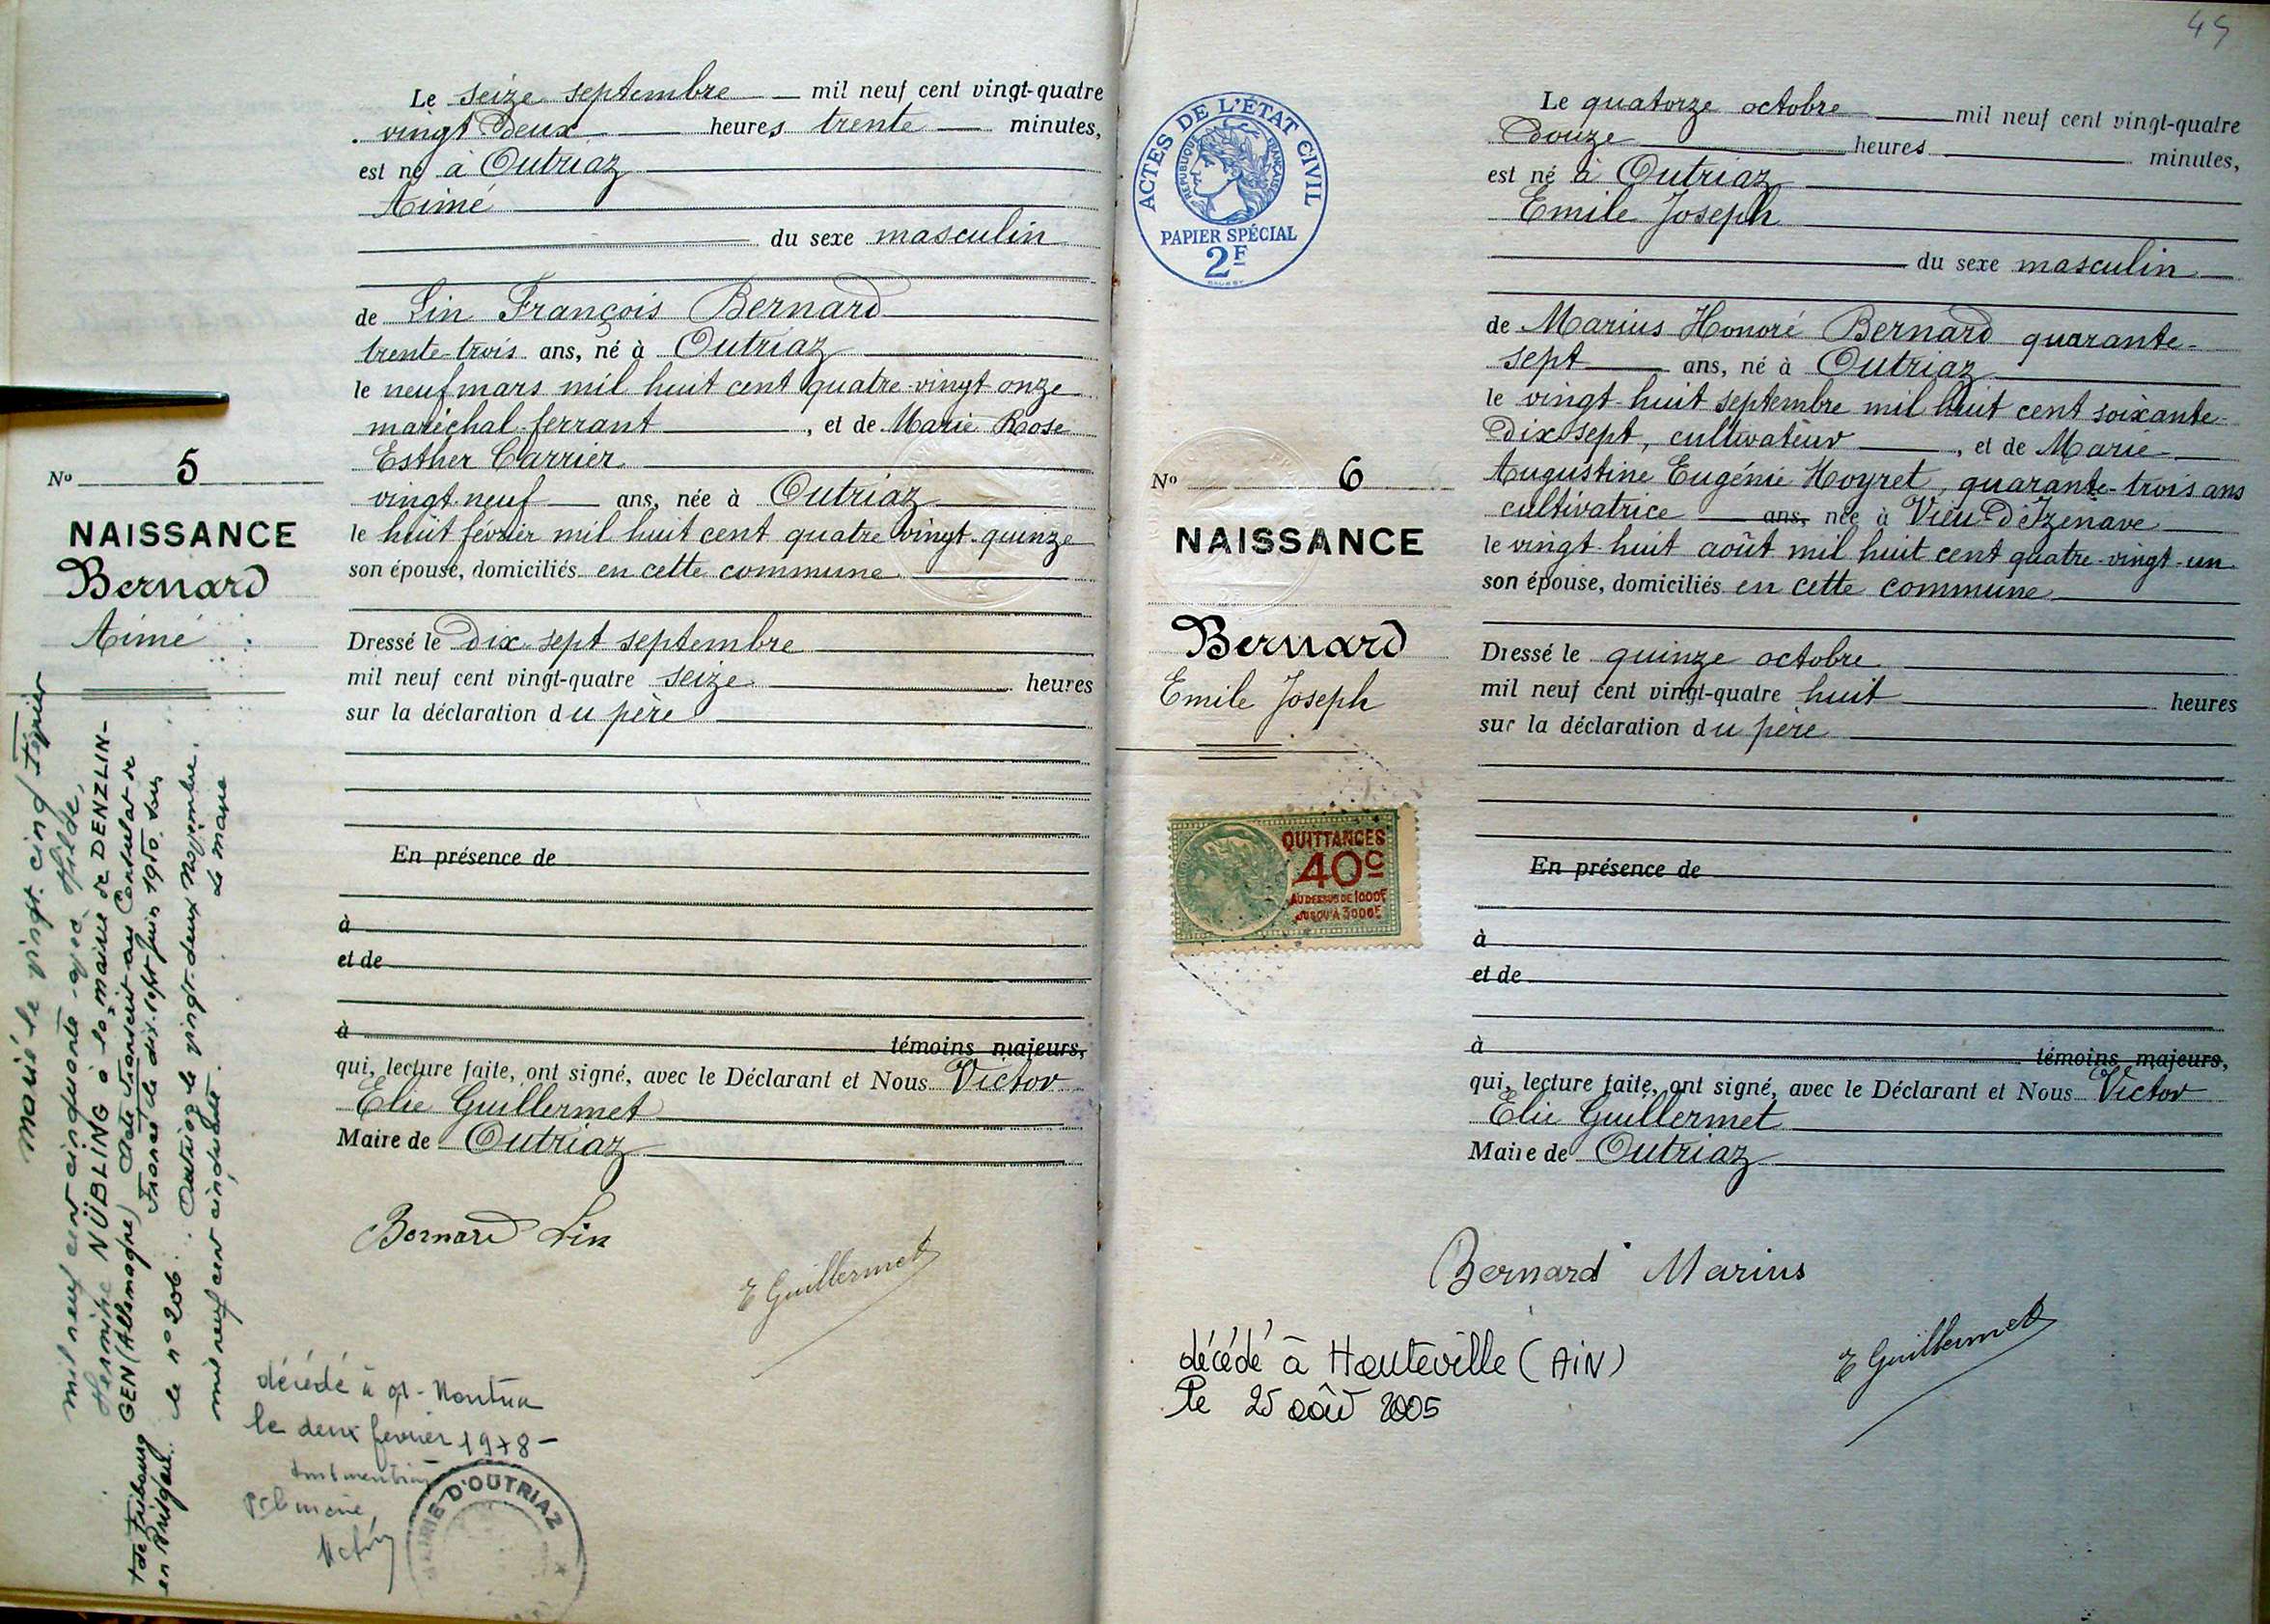 Le seize septembre mil neuf cent vingt-quatre
vingt deux heures trente minutes,
est né à Outriaz
Aimé
du sexe masculin
de Lin François Bernard
trente-trois ans, né à Outriaz
le neuf mars mil huit cent quatre-vingt onze
maréchal-ferrant, et de Marie Rose
Esther Carrier
vingt-neuf ans, née à Outriaz
le huit février mil huit cent quatre vingt-quinze
son épouse, domiciliés en cette commune
Dressé le dix sept septembre
mil neuf cent vingt-quatre seize heures
sur la déclaration du père
En présence de
à
et de
à témoins majeurs,
qui, lecture faite, ont signé, avec le Déclarant et Nous Victor
Elie Guillermet
Maire de Outriaz
Bernard Lin
E Guillermet
No 5
NAISSANCE
Bernard
Aimé
Marié le vingt cinq Février
mil neuf cent cinquante avec Hilde,
Hermine NÜBLING à la mairie de DENZLIN-
GEN (Allemagne) Acte transcrit au Consulat de
France + le dix-sept juin 1950 sous
le n° 206. Outriaz le vingt-deux Novembre
mil neuf cent cinquante. Le maire
+ de Fribourg
en Brisgau
décédé à Nantua
le deux février 1978 -
MAIRIE D'OUTRIAZ
45
ACTES DE L'ÉTAT CIVIL
RÉPUBLIQUE FRANÇAISE
PAPIER SPÉCIAL
2F
No 6
NAISSANCE
Bernard
Emile Joseph
QUITTANCES
40c
AU DESSUS DE 1000F
JUSQU'A 3000F
Le quatorze octobre mil neuf cent vingt-quatre
douze heures minutes,
est né à Outriaz
Emile Joseph
du sexe masculin
de Marius Honoré Bernard quarante-
sept ans, né à Outriaz
le vingt-huit septembre mil huit cent soixante-
dix sept, cultivateur, et de Marie
Augustine Eugénie Hoyret, quarante-trois ans
cultivatrice ans, née à Vieu-d'Izenave
le vingt-huit août mil huit cent quatre-vingt-un
son épouse, domiciliés en cette commune
Dressé le quinze octobre
mil neuf cent vingt-quatre huit heures
sur la déclaration du père
En présence de
à
et de
à témoins majeurs,
qui, lecture faite, ont signé, avec le Déclarant et Nous Victor
Elie Guillermet
Maire de Outriaz
Bernard Marius
E Guillermet
décédé à Hauteville (AiN)
le 25 août 2005